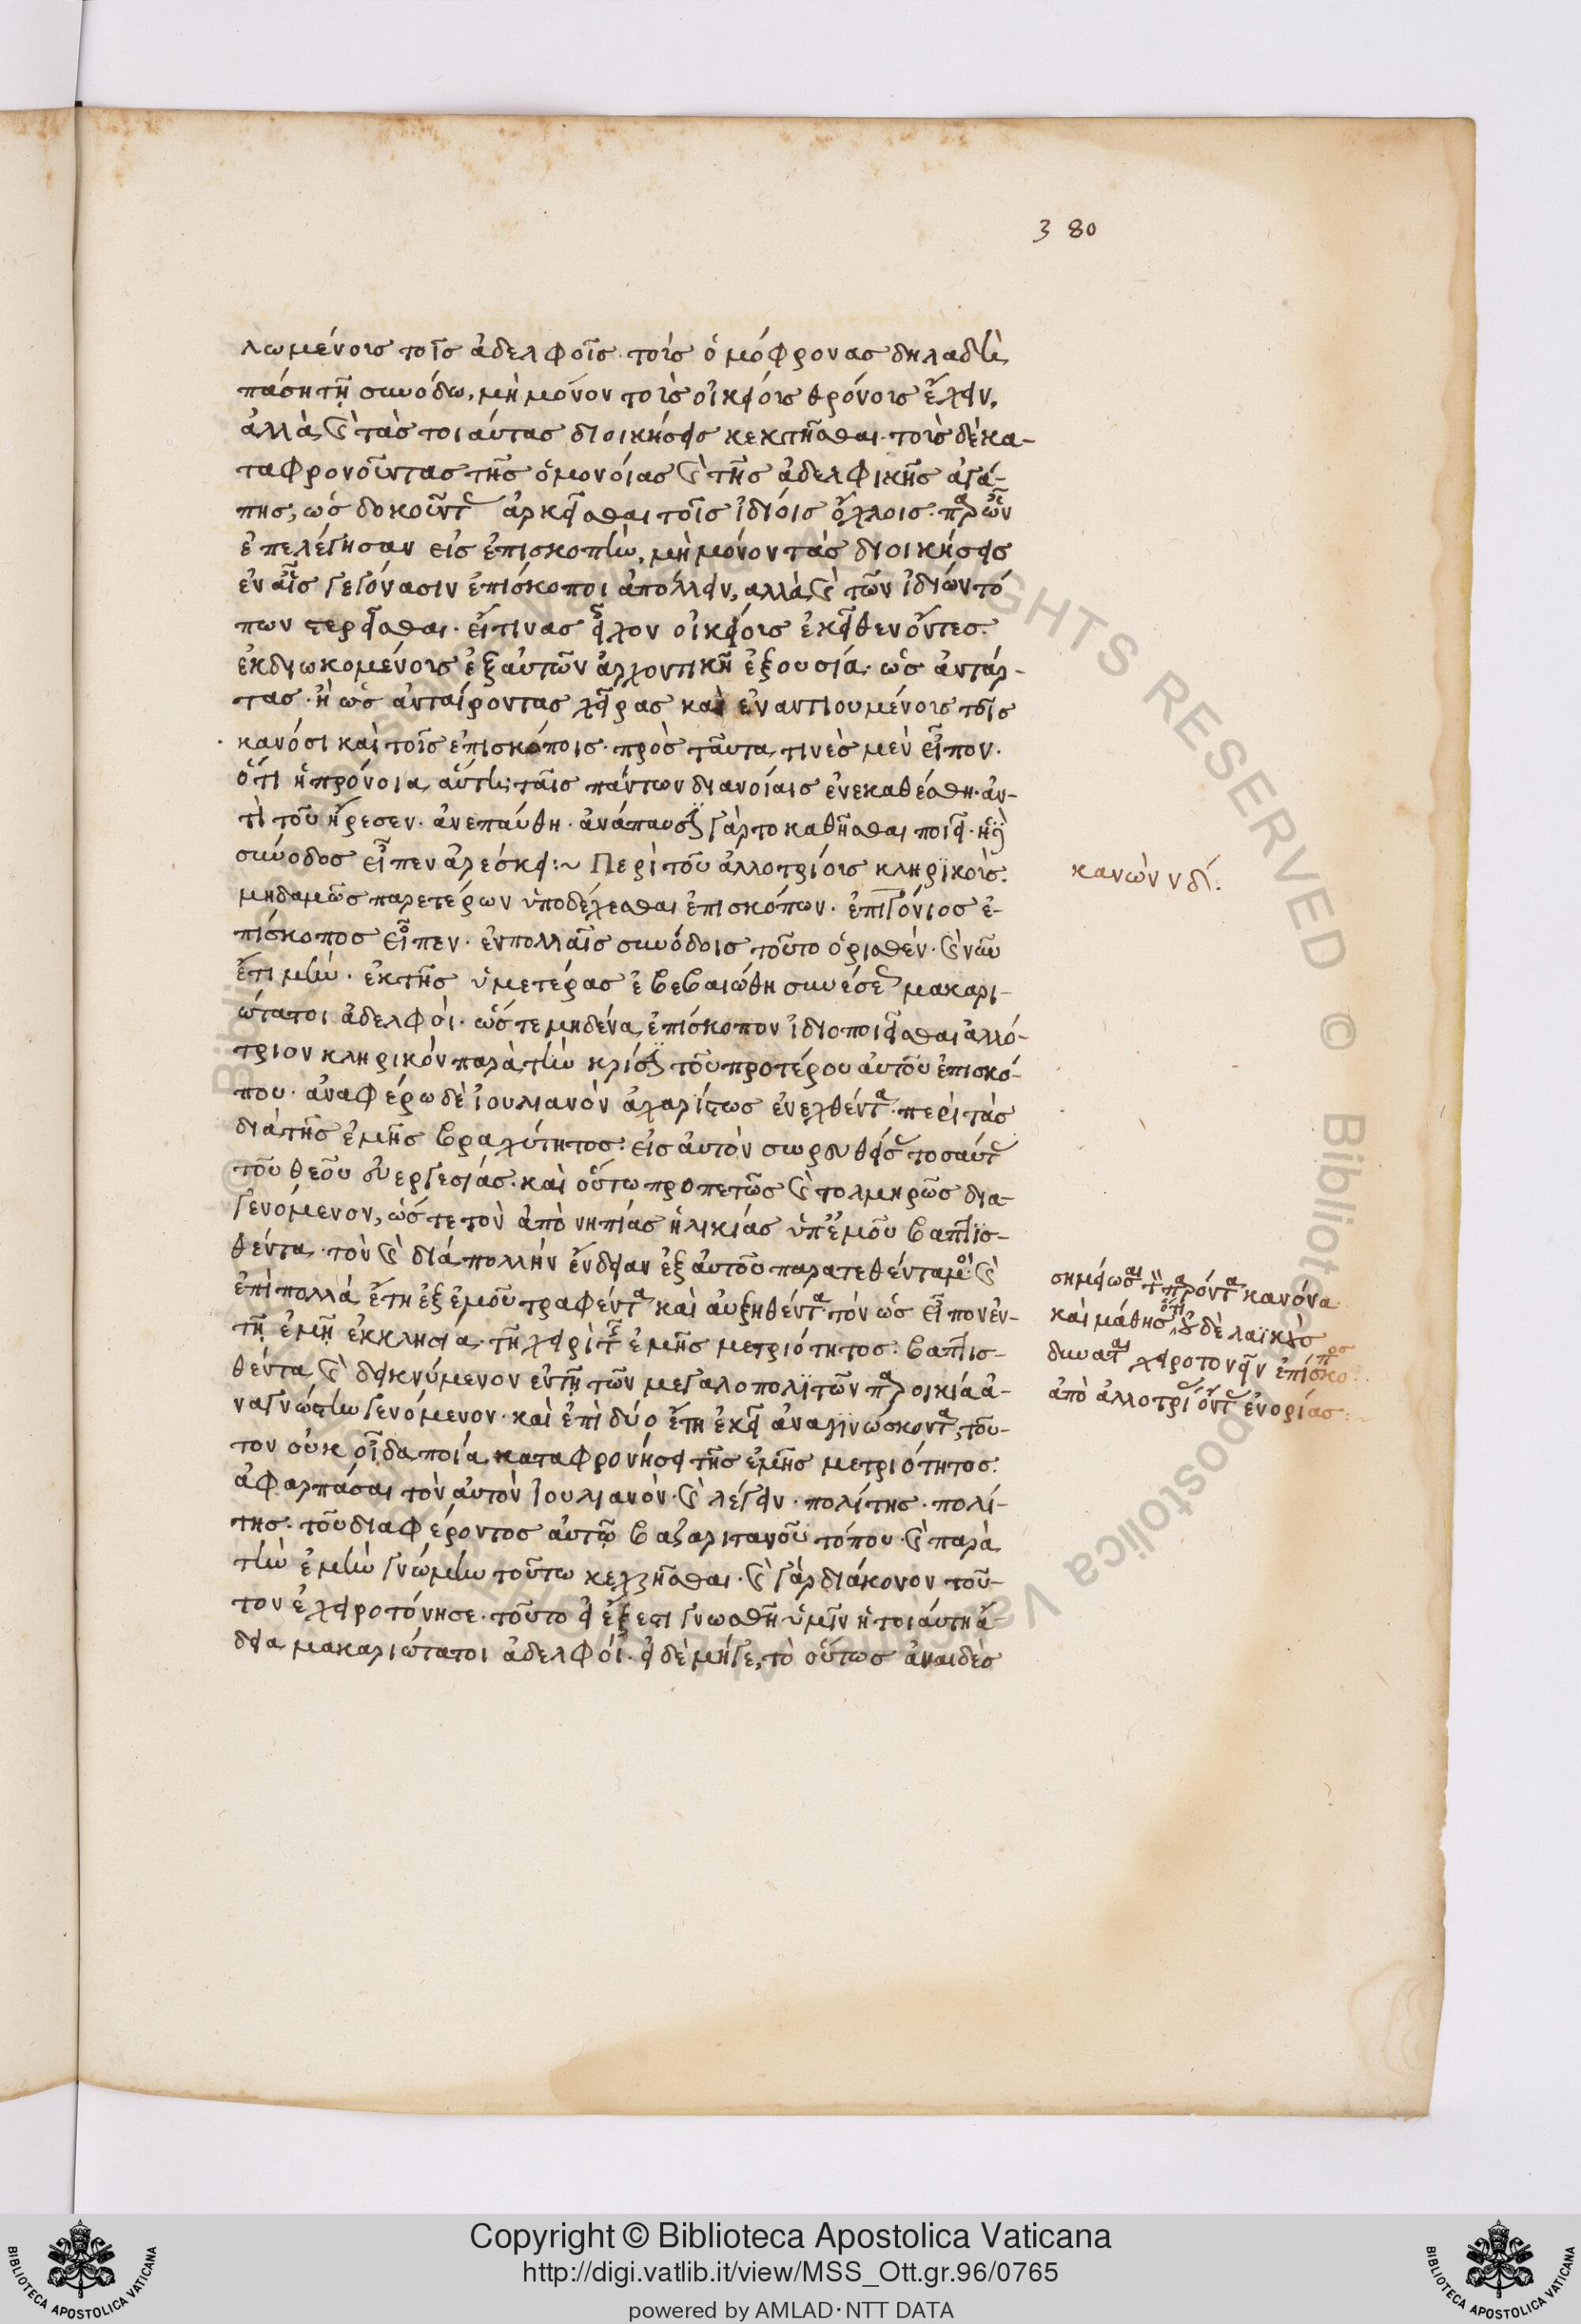 3 80
λωμένους τοῖς ἀδελφοῖς· τοὺς ὁμόφρονας δηλαδὴ
πάσῃ τῇ συνόδω, μὴ μόνον τοὺς οἰκείους θρόνους ἔχειν,
ἀλλὰ καὶ τὰς τοιαύτας διοικήσεις κεκτῆσθαι· τοὺς δὲ κα-
ταφρονοῦντας τῆς ὁμονοίας καὶ τῆς ἀδελφικῆς ἀγά-
πης, ὡς δοκοῦντας ἀρκεῖσθαι τοῖς ἰδίοις ὄχλοις· παρ' ὧν
ἐπελέγησαν εἰς ἐπισκοπὴν, μὴ μόνον τὰς διοικήσεις
ἐν αἷς γεγόνασιν ἐπίσκοποι ἀπολλειν, αλλὰ καὶ τῶν ἰδίων τό
πων στερεῖσθαι· εἴτινας εἶχον οἰκείους ἐκεῖθεν ὄντες·
ἐκδιωκομένους ἐξ αὐτῶν ἀρχοντικῆ ἐξουσία· ὡς ἀντάρ-
τας· ἢ ὡς ἀνταίροντας χεῖρας καὶ ἐναντιουμένους τοῖς
κανόσι καὶ τοῖς ἐπισκόποις· πρὸς ταῦτα, τινὲς μὲν εἶπον·
ὅτι ἡ πρόνοια αὕτη ταῖς πάντων διανοίαις ἐνεκαθέσθη· ἀν-
τὶ τοῦ ἤρεσεν· ἀνεπαύθη· ἀνάπαυσιν γὰρ το καθῆσθαι ποιεῖ· ἡ
σύνοδος εἶπεν ἀρέσκει :~ Περὶ τοῦ ἀλλοτρίους κληρϊκοὺς·
μηδαμῶς παρετέρων ὑποδέχεσθαι ἐπισκόπων· ἐπιγόνιος ἐ-
πίσκοπος εἶπεν· ἐν πολλαῖς συνόδοις τοῦτο ὁρισθὲν· καὶ νῦν
ἔτι μὴν· ἐκ τῆς ὑμετέρας ἐβεβαιώθη συνέσεως μακαρι-
ώτατοι ἀδελφὸι· ὥστε μηδένα ἐπίσκοπον ἰδιοποιεῖσθαι ἀλλό-
τριον κληρικὸν παρὰ τὴν κρίσιν τοῦ προτέρου αὐτοῦ ἐπισκό-
που· ἀναφέρω δὲ ἰουλιανὸν ἀχαρίστως ἐνεχθέντα· περὶ τὰς
διὰ τῆς ἐμῆς βραχύτητος· εἰς αὐτὸν σωρευθείσας τοσαύτας
τοῦ θεοῦ εὐεργεσίας· καὶ οὕτω προπετῶς καὶ τολμηρῶς δια-
γενόμενον, ὥστε τὸν ἀπὸ νηπίας ἡλικίας ὑπ' ἐμοῦ βαπτϊσ-
θέντα· τὸν καὶ διὰ πολλὴν ἔνδειαν ἐξ αὐτοῦ παρατεθέντα μοι· καὶ
ἐπὶ πολλὰ ἔτη ἐξ ἐμοῦ τραφέντα καὶ αὐξηθέντα· τὸν ὡς εἶπον ἐν
τῇ ἐμῇ ἐκκλησία· τῇ χειρὶ τῆς ἐμῆς μετριότητος· βαπτισ-
θέντα, καὶ δεικνύμενον ἐν τῇ τῶν μεγαλοπολιτῶν παροικία ἀ-
ναγνώστην γενόμενον· καὶ ἐπὶ δύο ἔτη ἐκεῖ ἀναγινώσκοντα, τοῦ-
τον οὐκ οἶδα ποία καταφρονήσει τῆς ἐμῆς μετριότητος·
ἀφαρπάσαι τὸν αὐτὸν Ἰουλιανὸν· καὶ λέγειν· πολίτης· πολί-
της· τοῦ διαφέροντος αὐτῷ βαζαριτανοῦ τόπου· καὶ παρὰ
τὴν ἐμὴν γνώμην τοῦτω κεχρῆσθαι· καὶ γὰρ διάκονον τοῦ-
τον ἐχειροτόνησε· τοῦτο εἰ ἔξεστι γνωσθῆ ὑμῖν ἡ τοιαύτη ἄ-
δεια μακαριώτατοι ἀδελφόι· εἰ δὲ μήγε, τὸ οὕτως ἀναιδὲς
κανὼν νδ΄:
σημείωσαι τὸν παρόντα κανόνα
καὶ μάθης, ὅτι οὐδὲ λαϊκοὺς
δύναται χειροτονεῖν ἐπίσκοπος
ἀπὸ ἀλλοτρίας ὄντας ἐνορίας :~
Copyright © Biblioteca Apostolica Vaticana
http://digi.vatlib.it/view/MSS_Ott.gr.96/0765
powered by AMLAD·NTT DATA